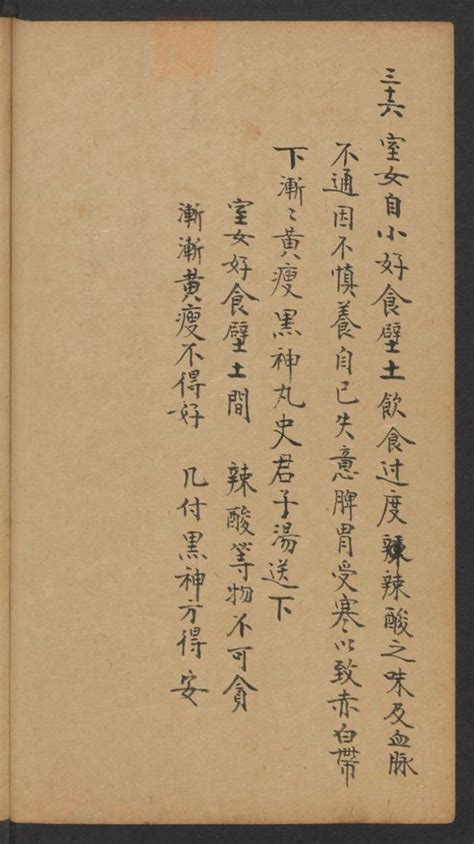 三十六 室女自小好食壁土飲食过度辣辣酸之味及血脉
不通因不慎養自已失意脾胃受寒以致赤白帶
下漸〻黃瘦黑神丸史君子湯送下
室女好食壁土間 辣酸等物不可貪
漸漸黃瘦不得好 几付黑神方得安